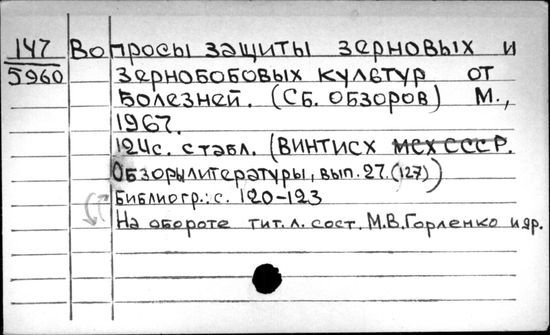 147 Вопросы защиты зерновых и
5960 зернобобовых культур от
болезней. (Сб. обзоров) М.,
1967.
124с. с табл. (ВИНТИСХ МСХ СССР.
Обзоры литературы, вып. 27. (127))
Библиогр.: с. 120-123
На обороте тит. л. сост. М.В. Горленко и др.